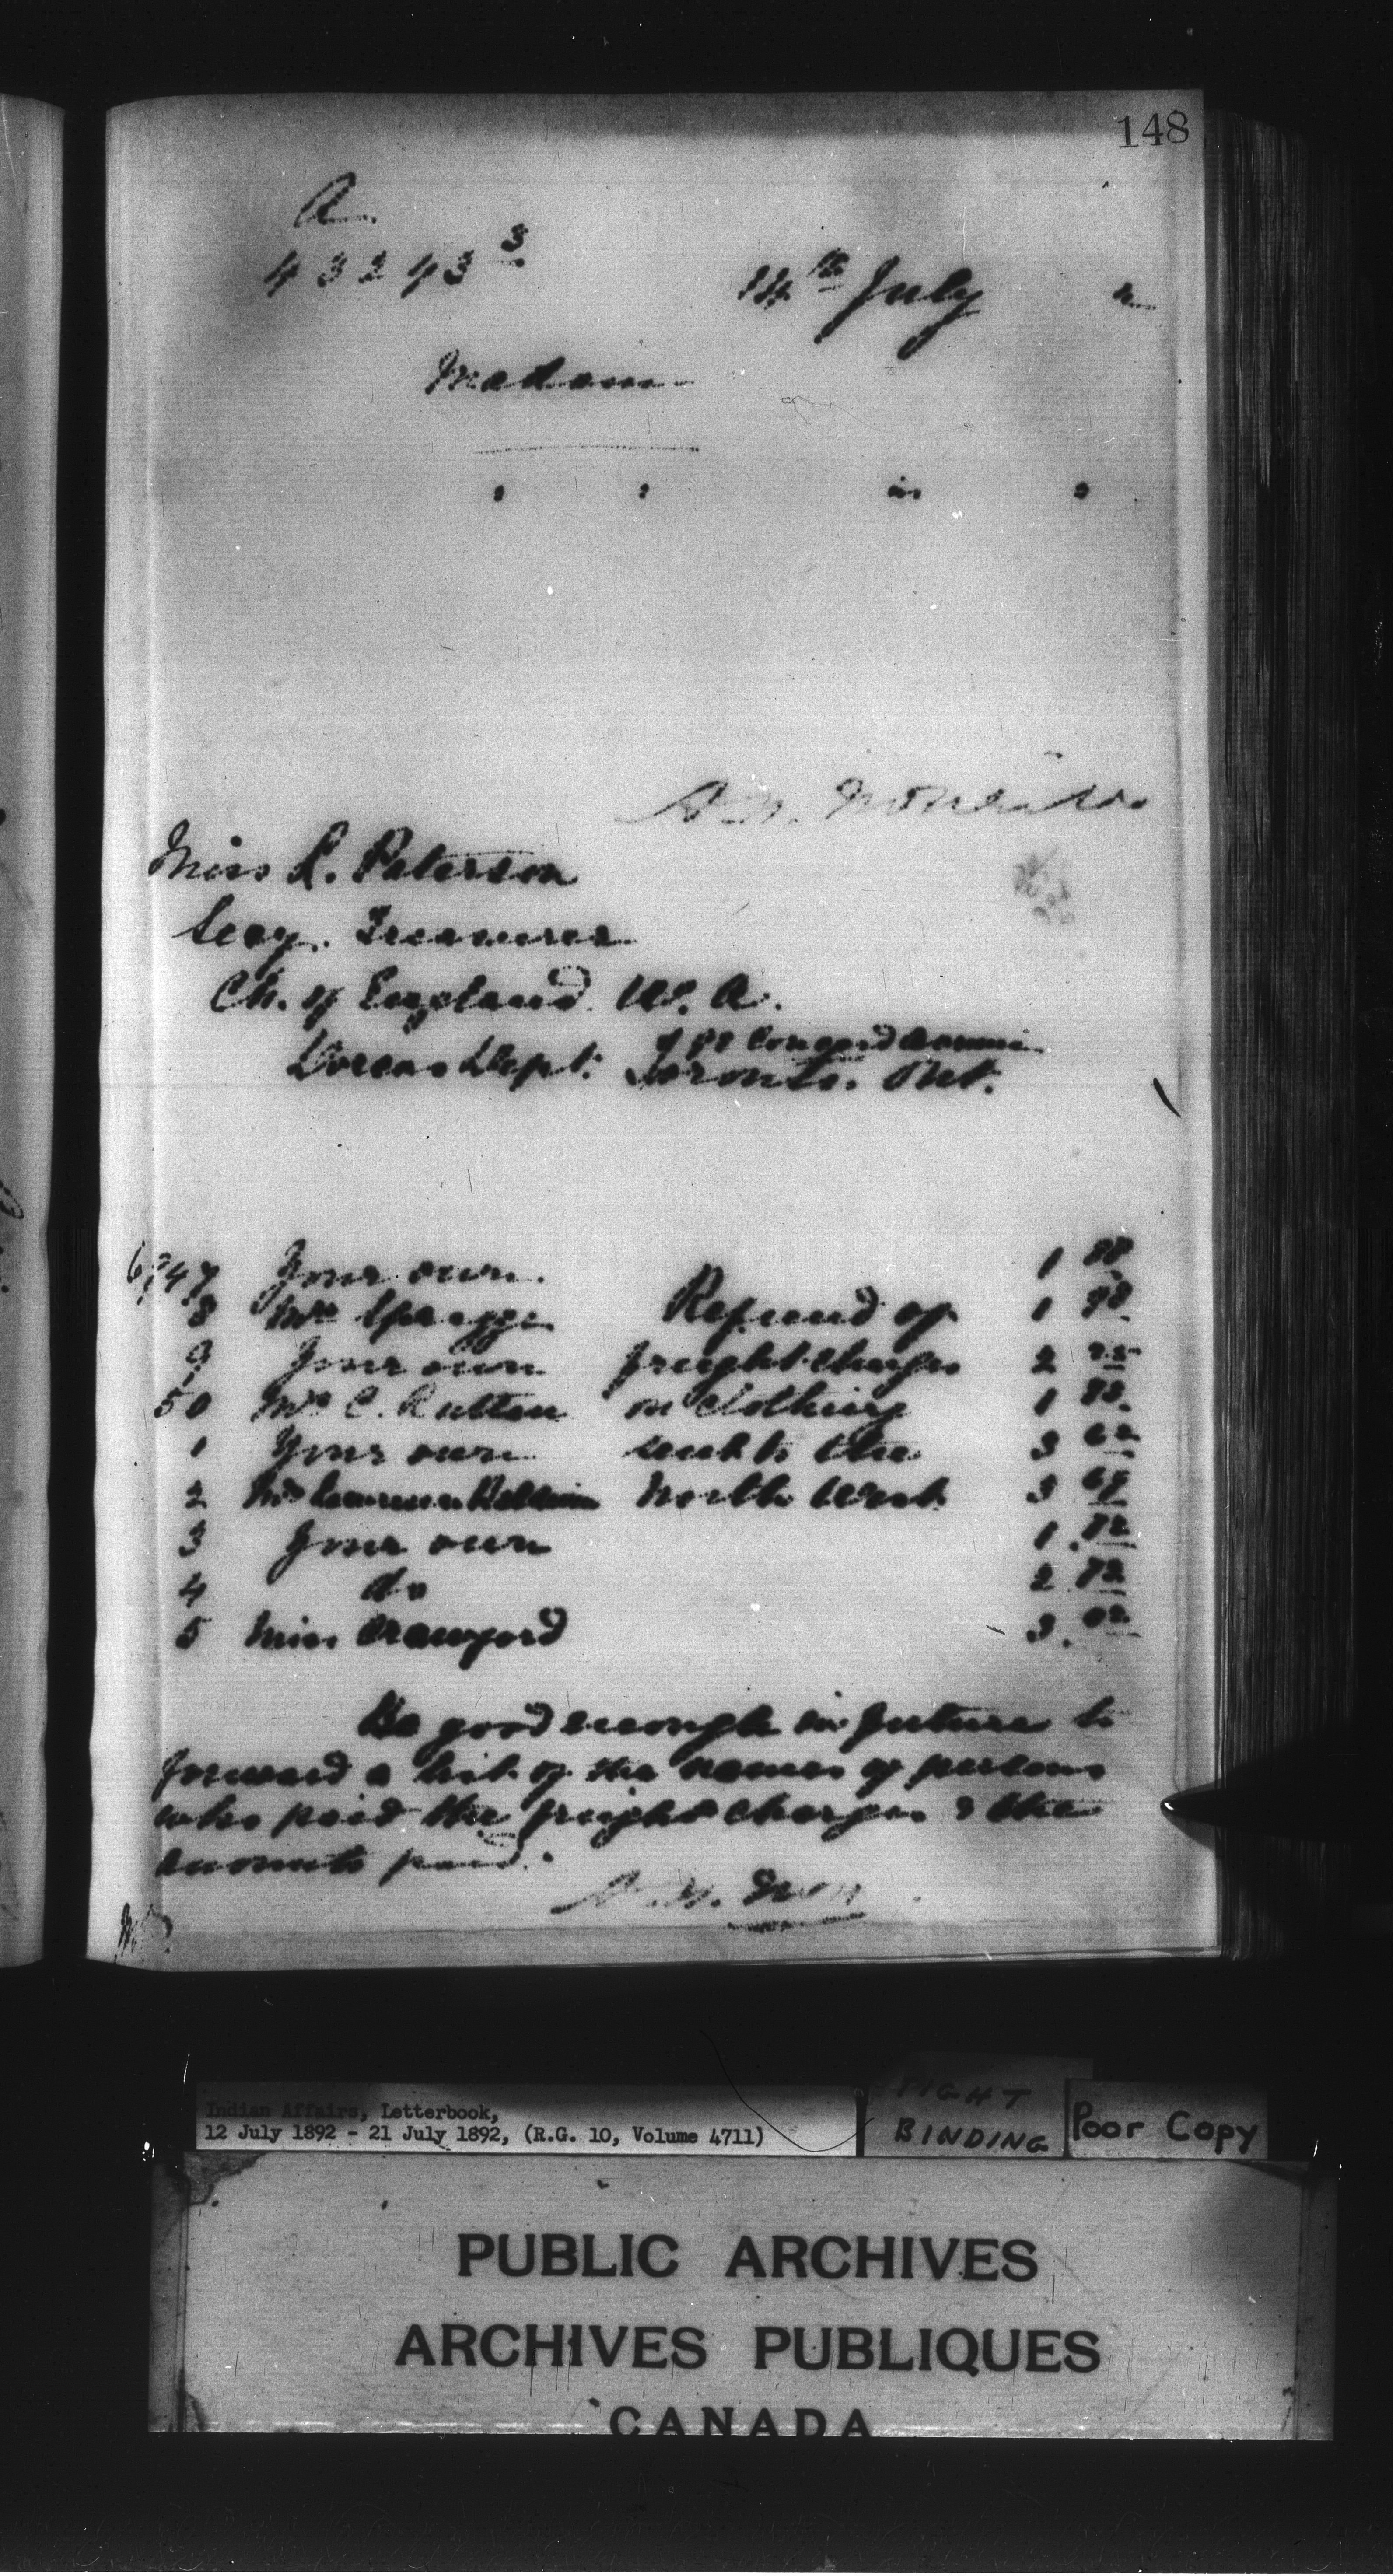 148
A.
43243 3
14th July 2
Madam
s s in s
Miss L. Paterson
Secy. Treasurer
Ch. of England W. A.
Dorcas Dept. Toronto. Ont.
6747 Your own. 1 88
8 Mrs Spragge Refund of 1 98
9 Your own freight charges 2
50 Mrs C. Rutten on Clothing 1
1 Your own sent to the 3
2 Mrs Baldwin North West 3
3 Your own 1.82
4 do 2 72
5 Miss Crawford 3.02
Be good enough in future to
forward a list of the names of persons
who paid the freight charges & the
amounts paid.
Indian Affairs, Letterbook,
12 July 1892 - 21 July 1892, (R.G. 10, Volume 4711)
TIGHT
BINDING
Poor Copy
PUBLIC ARCHIVES
ARCHIVES PUBLIQUES
CANADA